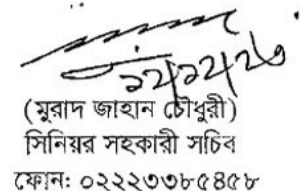 ১২/১২/২৩
(মুরাদ জাহান চৌধুরী)
সিনিয়র সহকারী সচিব
ফোন: ০২২২৩৩৮৫৪৫৮